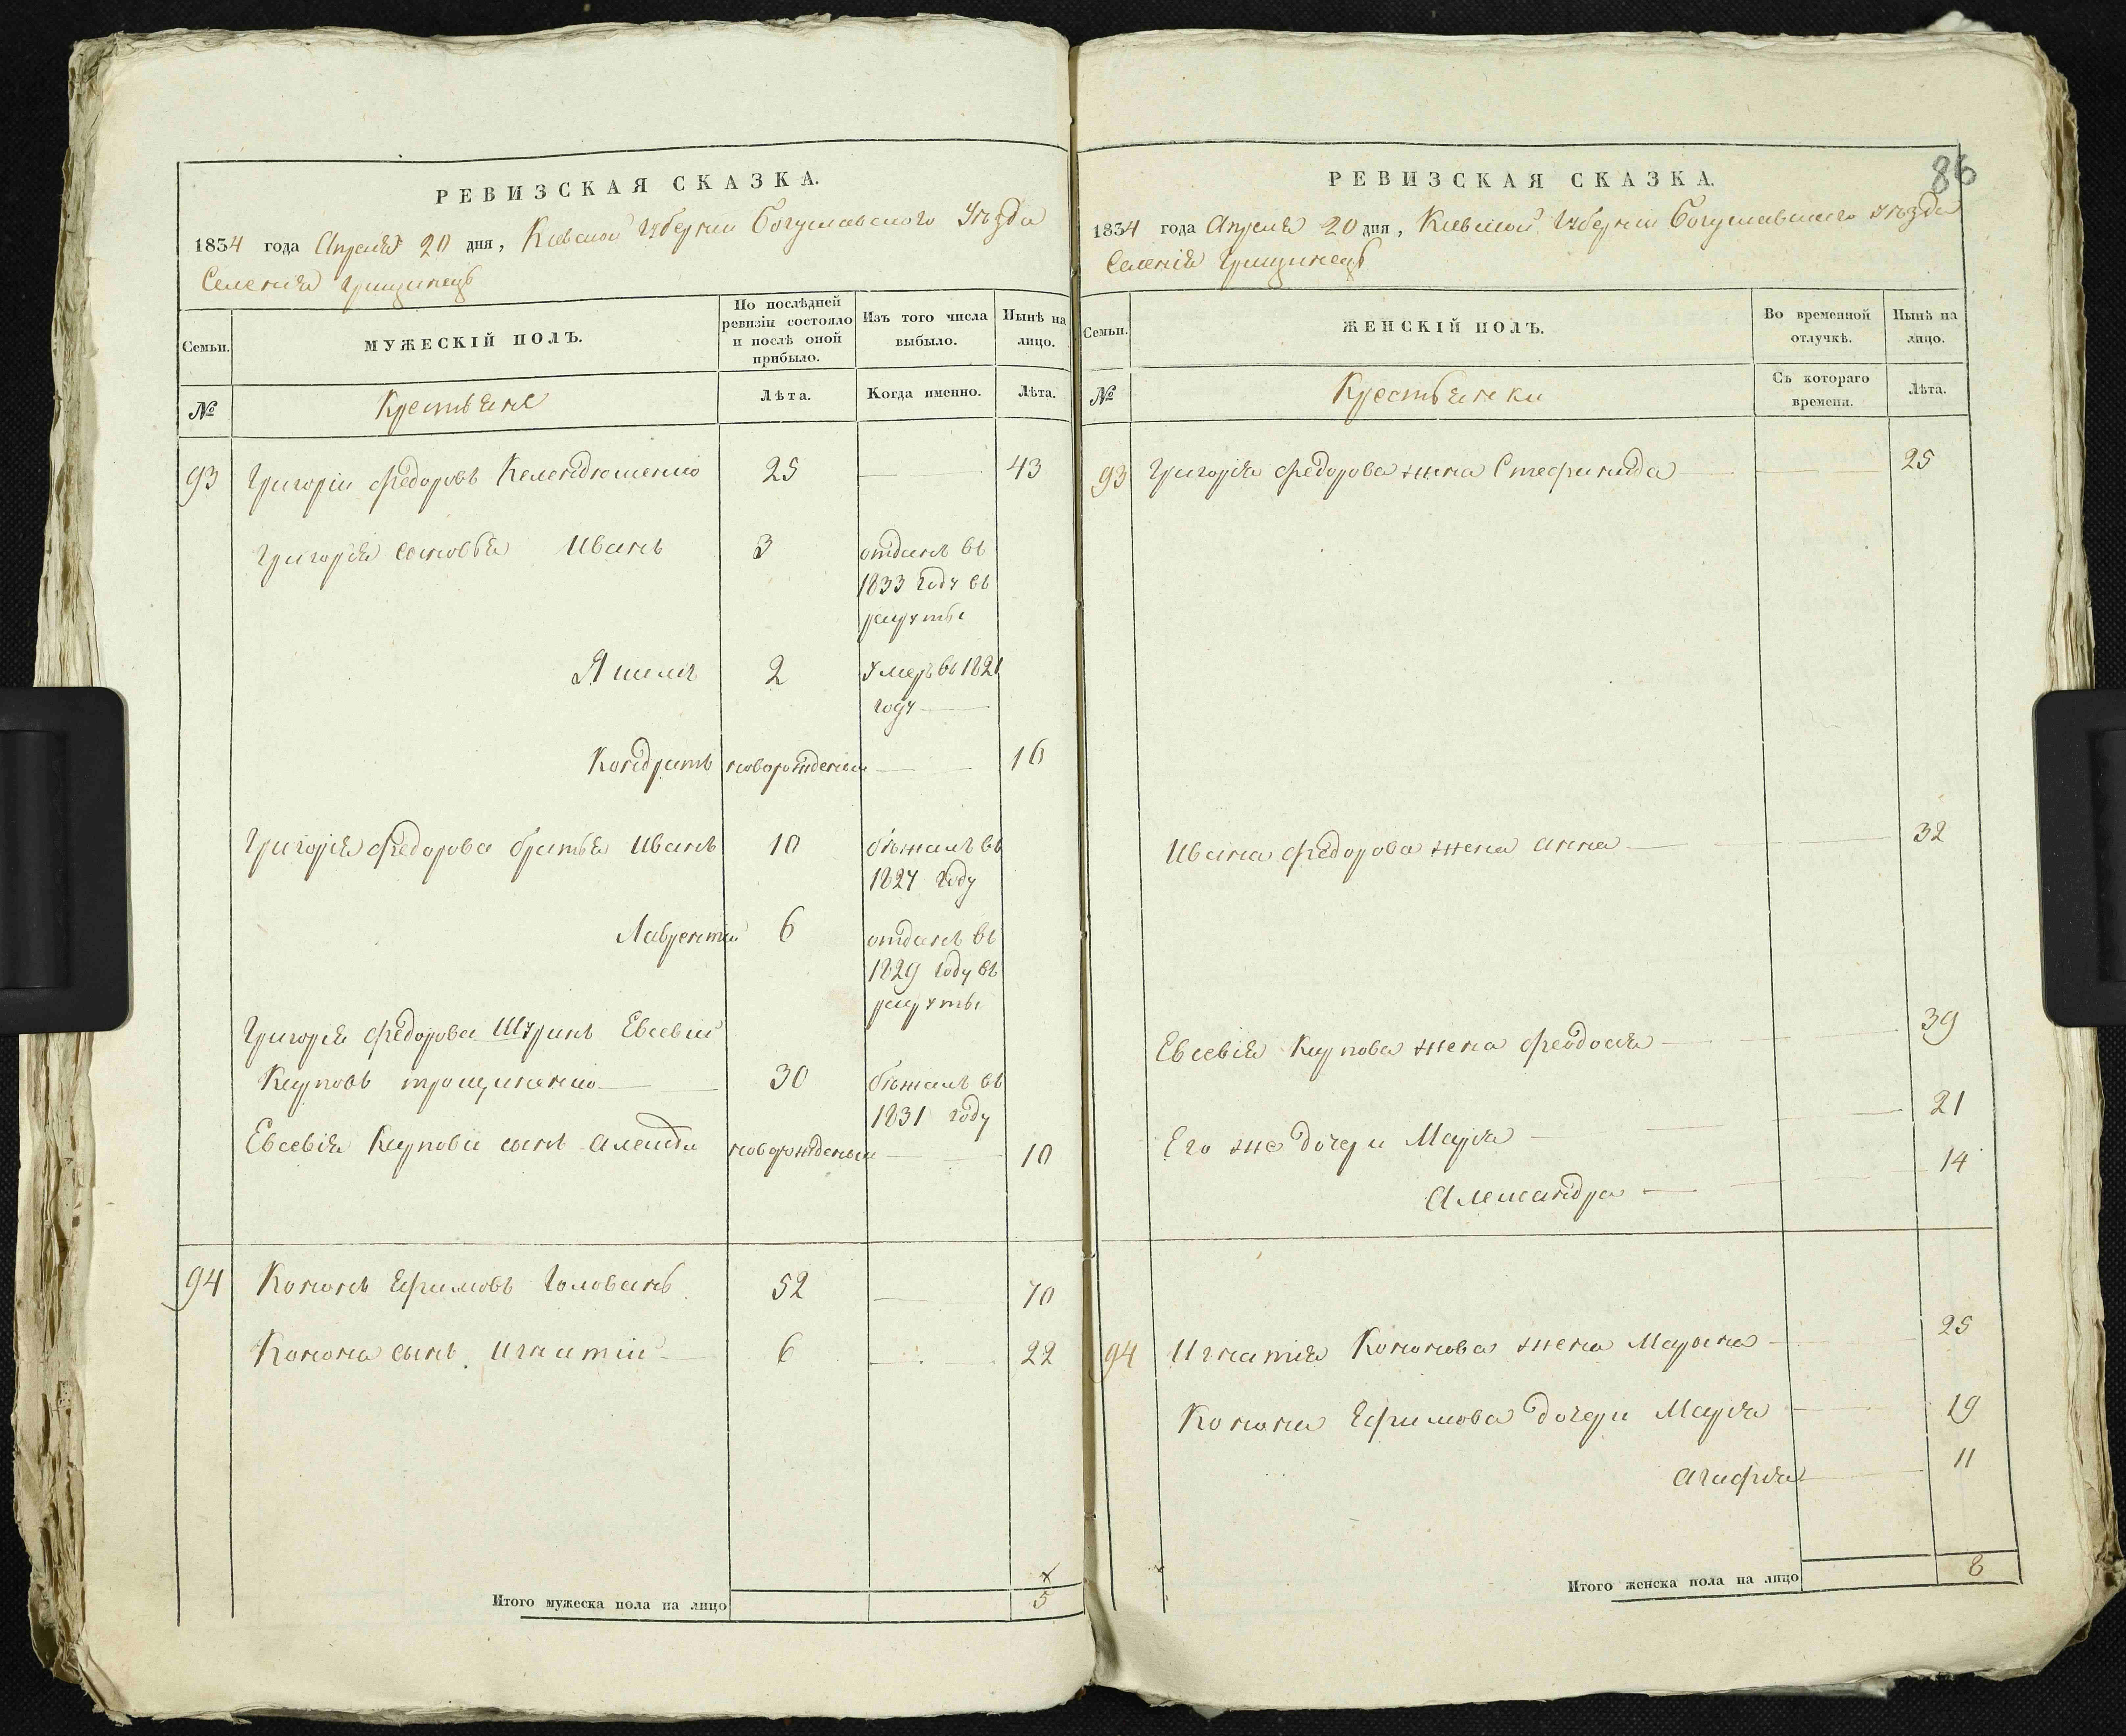 РЕВИЗСКАЯ СКАЗКА.
1834 года Апреля 20 дня, Киевской Губернии Богуславского Уезда
Селения Грищинецъ
Семьи.
МУЖЕСКІЙ ПОЛЪ.
По послѣдней ревизіи состояло и послѣ оной прибыло.
Изъ того числа выбыло.
Нынѣ на лицо.
№
Крестьяне
Лѣта.
Когда именно.
Лѣта.
93 Григорій Федоровъ 25 — 43
Григорія сыновья Иванъ 3 отданъ въ
1833 году въ
рекруты
Якимъ 2 умеръ въ 1821
году —
Кондратъ новорожденый — 16
Григорія Федорова братья Иванъ 10 бѣжалъ въ
1827 году
Лаврентій 6 отданъ въ
1829 году въ
рекруты
Григорія Федорова Шуринъ Евсевій
Карповъ 30 бѣжалъ въ
1831 году
Евсевія Карпова сынъ новорожденый — 10
94 Кононъ Ефимовъ Голованъ 52 — 70
Конона сынъ Игнатій — 6 — 22
Итого мужеска пола на лицо 5
86
РЕВИЗСКАЯ СКАЗКА.
1834 года Апреля 20 дня, Киевской Губернии Богуславского Уезда
Селения Грищинецъ
Семьи.
ЖЕНСКІЙ ПОЛЪ.
Во временной отлучкѣ.
Нынѣ на лицо.
№
Крестьянки
Съ котораго времени.
Лѣта.
93 Григорія Федорова жена Стефанида — 25
Ивана Федорова жена Анна — 32
Евсевія Карпова жена Феодосія — 39
Его же дочери Марія — 21
Александра — 14
94 Игнатія Кононова жена Марьяна — 25
Конона Ефимова дочери Марія — 19
Агафія — 11
Итого женска пола на лицо 8